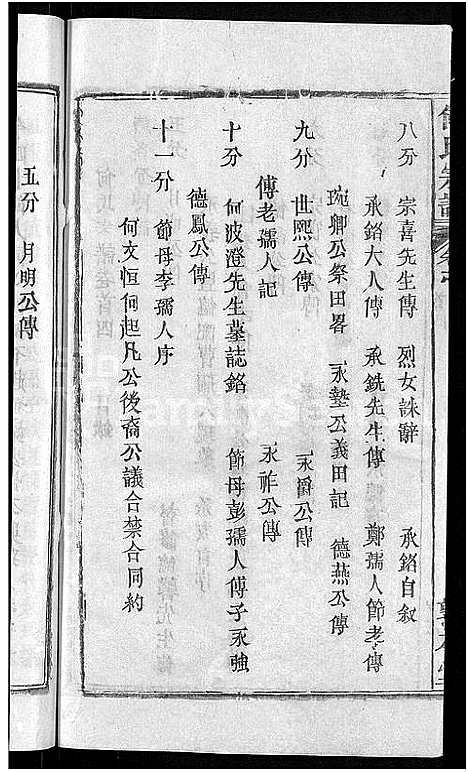 八分　宗喜先生傳　烈女誄辭　承鉻自叙
承鉻大人傳　承銑先生傳　鄭孺人節孝傳
琬卿公祭田畧　永塾公義田記　德燕公傳
九分　世熙公傳　永爵公傳
傅老孺人記　永祚公傳
十分　何波澄先生墓誌銘　節母彭孺人傳子永強
德鳳公傳
十一分　節母李孺人序
何文恒何起凡公後裔公議合禁合同約
五分　月明公傳